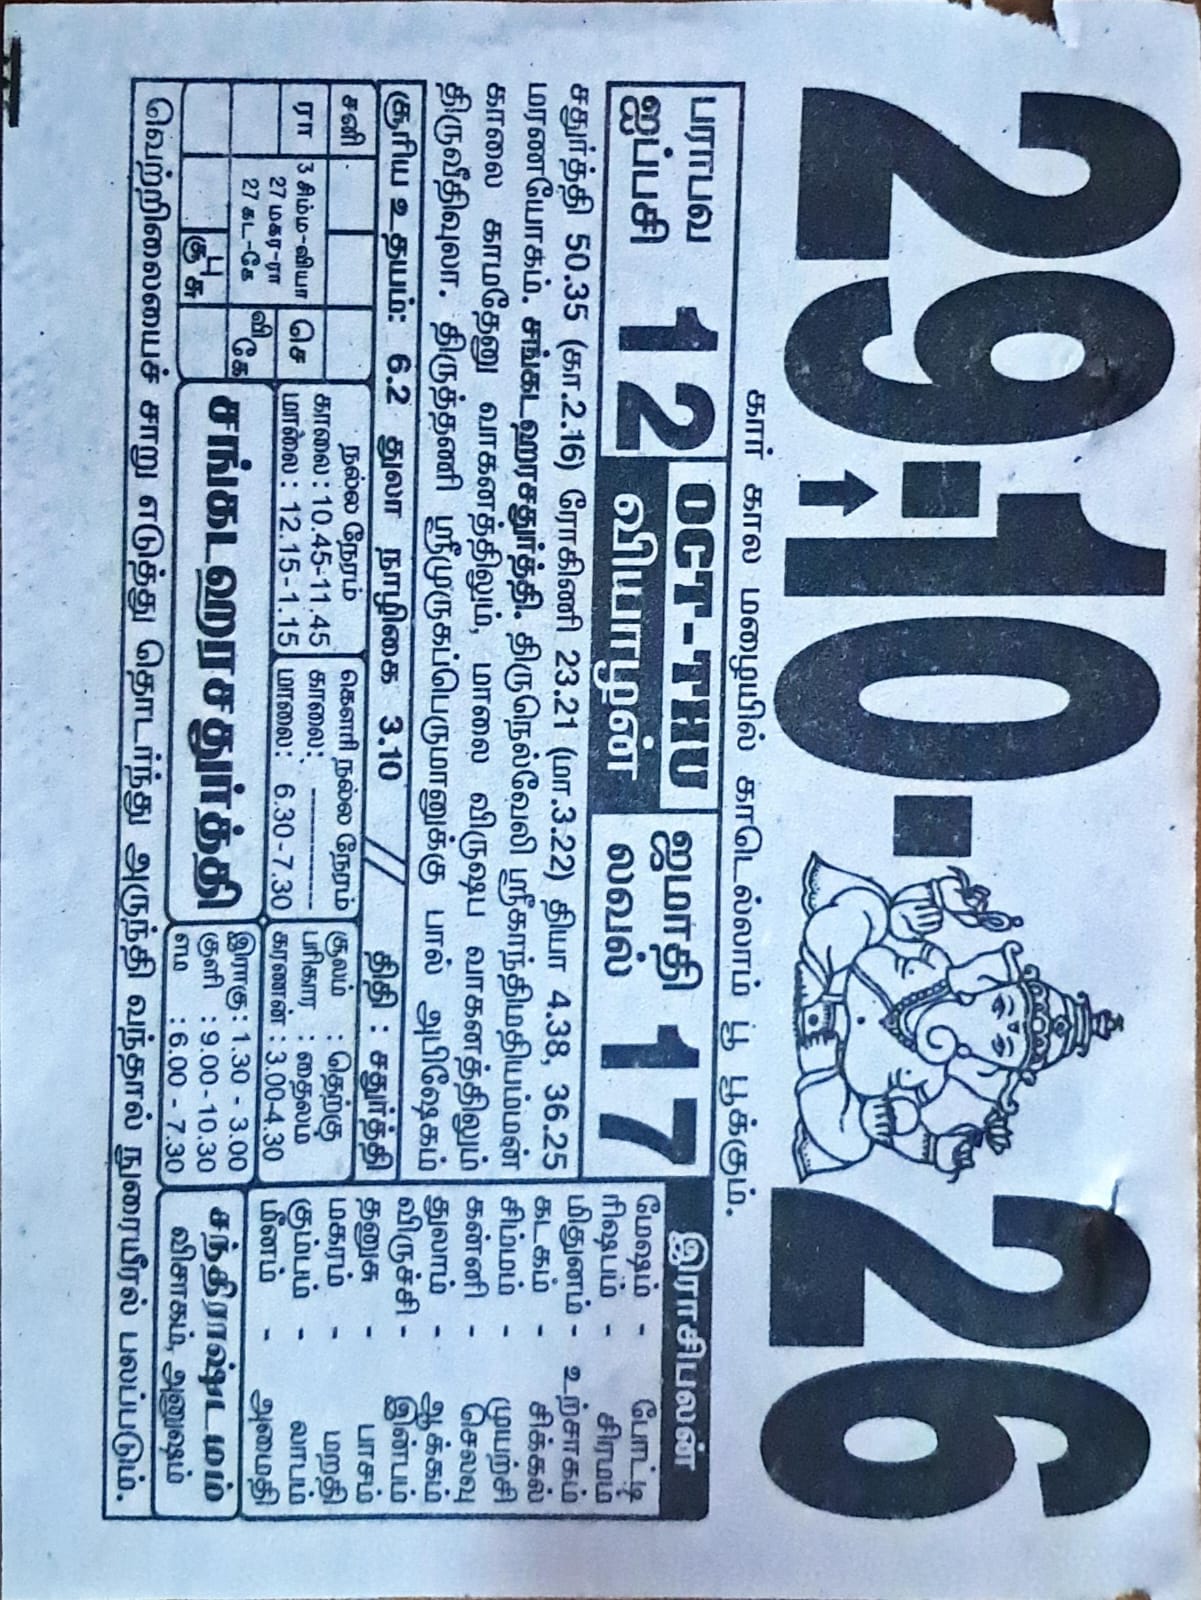 29-10-26
கார் கால மழையில் காடெல்லாம் பூ பூக்கும்.
பராபவ
ஐப்பசி
12
OCT-THU
வியாழன்
ஜமாதி
லவல்
17
சதுர்த்தி 50.35 (கா.2.16) ரோகிணி 23.21 (மா.3.22) தியா 4.38, 36.25
மரணயோகம். சங்கடஹரசதுர்த்தி. திருநெல்வேலி ஸ்ரீகாந்திமதியம்மன்
காலை காமதேனு வாகனத்திலும், மாலை விருஷப வாகனத்திலும்
திருவீதிவுலா. திருத்தணி ஸ்ரீமுருகப்பெருமானுக்கு பால் அபிஷேகம்
சூரிய உதயம்: 6.2 துலா நாழிகை 3.10 // திதி : சதுர்த்தி
சனி
ரா
3 சிம்ம-வியா
27 மகர-ரா
27 கட-கே
செ
வி
கே
பு
கு சு
நல்ல நேரம்
காலை : 10.45-11.45
மாலை : 12.15-1.15
கௌரி நல்ல நேரம்
காலை: ----------
மாலை: 6.30-7.30
சூலம் : தெற்கு
பரிகார : தைலம்
கரணன் : 3.00-4.30
சங்கடஹரசதுர்த்தி
இராகு : 1.30 - 3.00
குளி : 9.00-10.30
எம : 6.00 - 7.30
இராசிபலன்
மேஷம் - போட்டி
ரிஷபம் - சிரமம்
மிதுனம் - உற்சாகம்
கடகம் - சிக்கல்
சிம்மம் - முயற்சி
கன்னி - செலவு
துலாம் - ஆக்கம்
விருச்சி - இன்பம்
தனுசு - பாசம்
மகரம் - மறதி
கும்பம் - லாபம்
மீனம் - அமைதி
சந்திராஷ்டமம்
விசாகம், அனுஷம்
வெற்றிலையைச் சாறு எடுத்து தொடர்ந்து அருந்தி வந்தால் நுரையீரல் பலப்படும்.